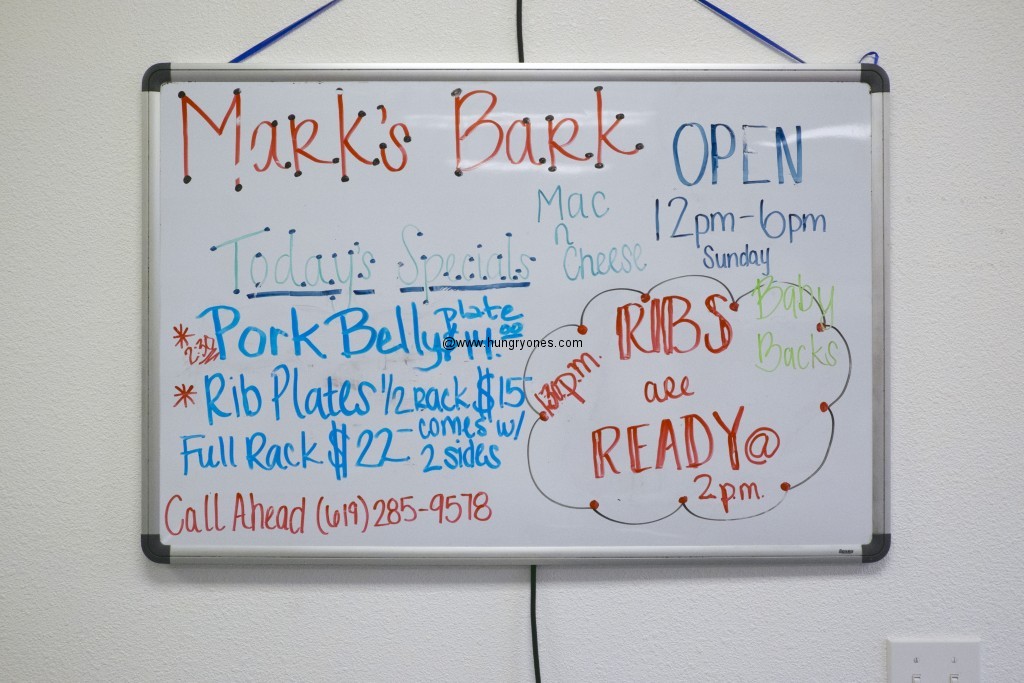 Mark's Bark
OPEN
12pm-6pm
Sunday
Mac
n
Cheese
Today's Specials
* Pork Belly plate $14.00
2:30
@www.hungryones.com
* Rib Plates 1/2 Rack $15
Full Rack $22- comes w/
2 sides
Call Ahead (619) 285-9578
Baby
Backs
RIBS
are
READY@
2 p.m.
1:30 p.m.